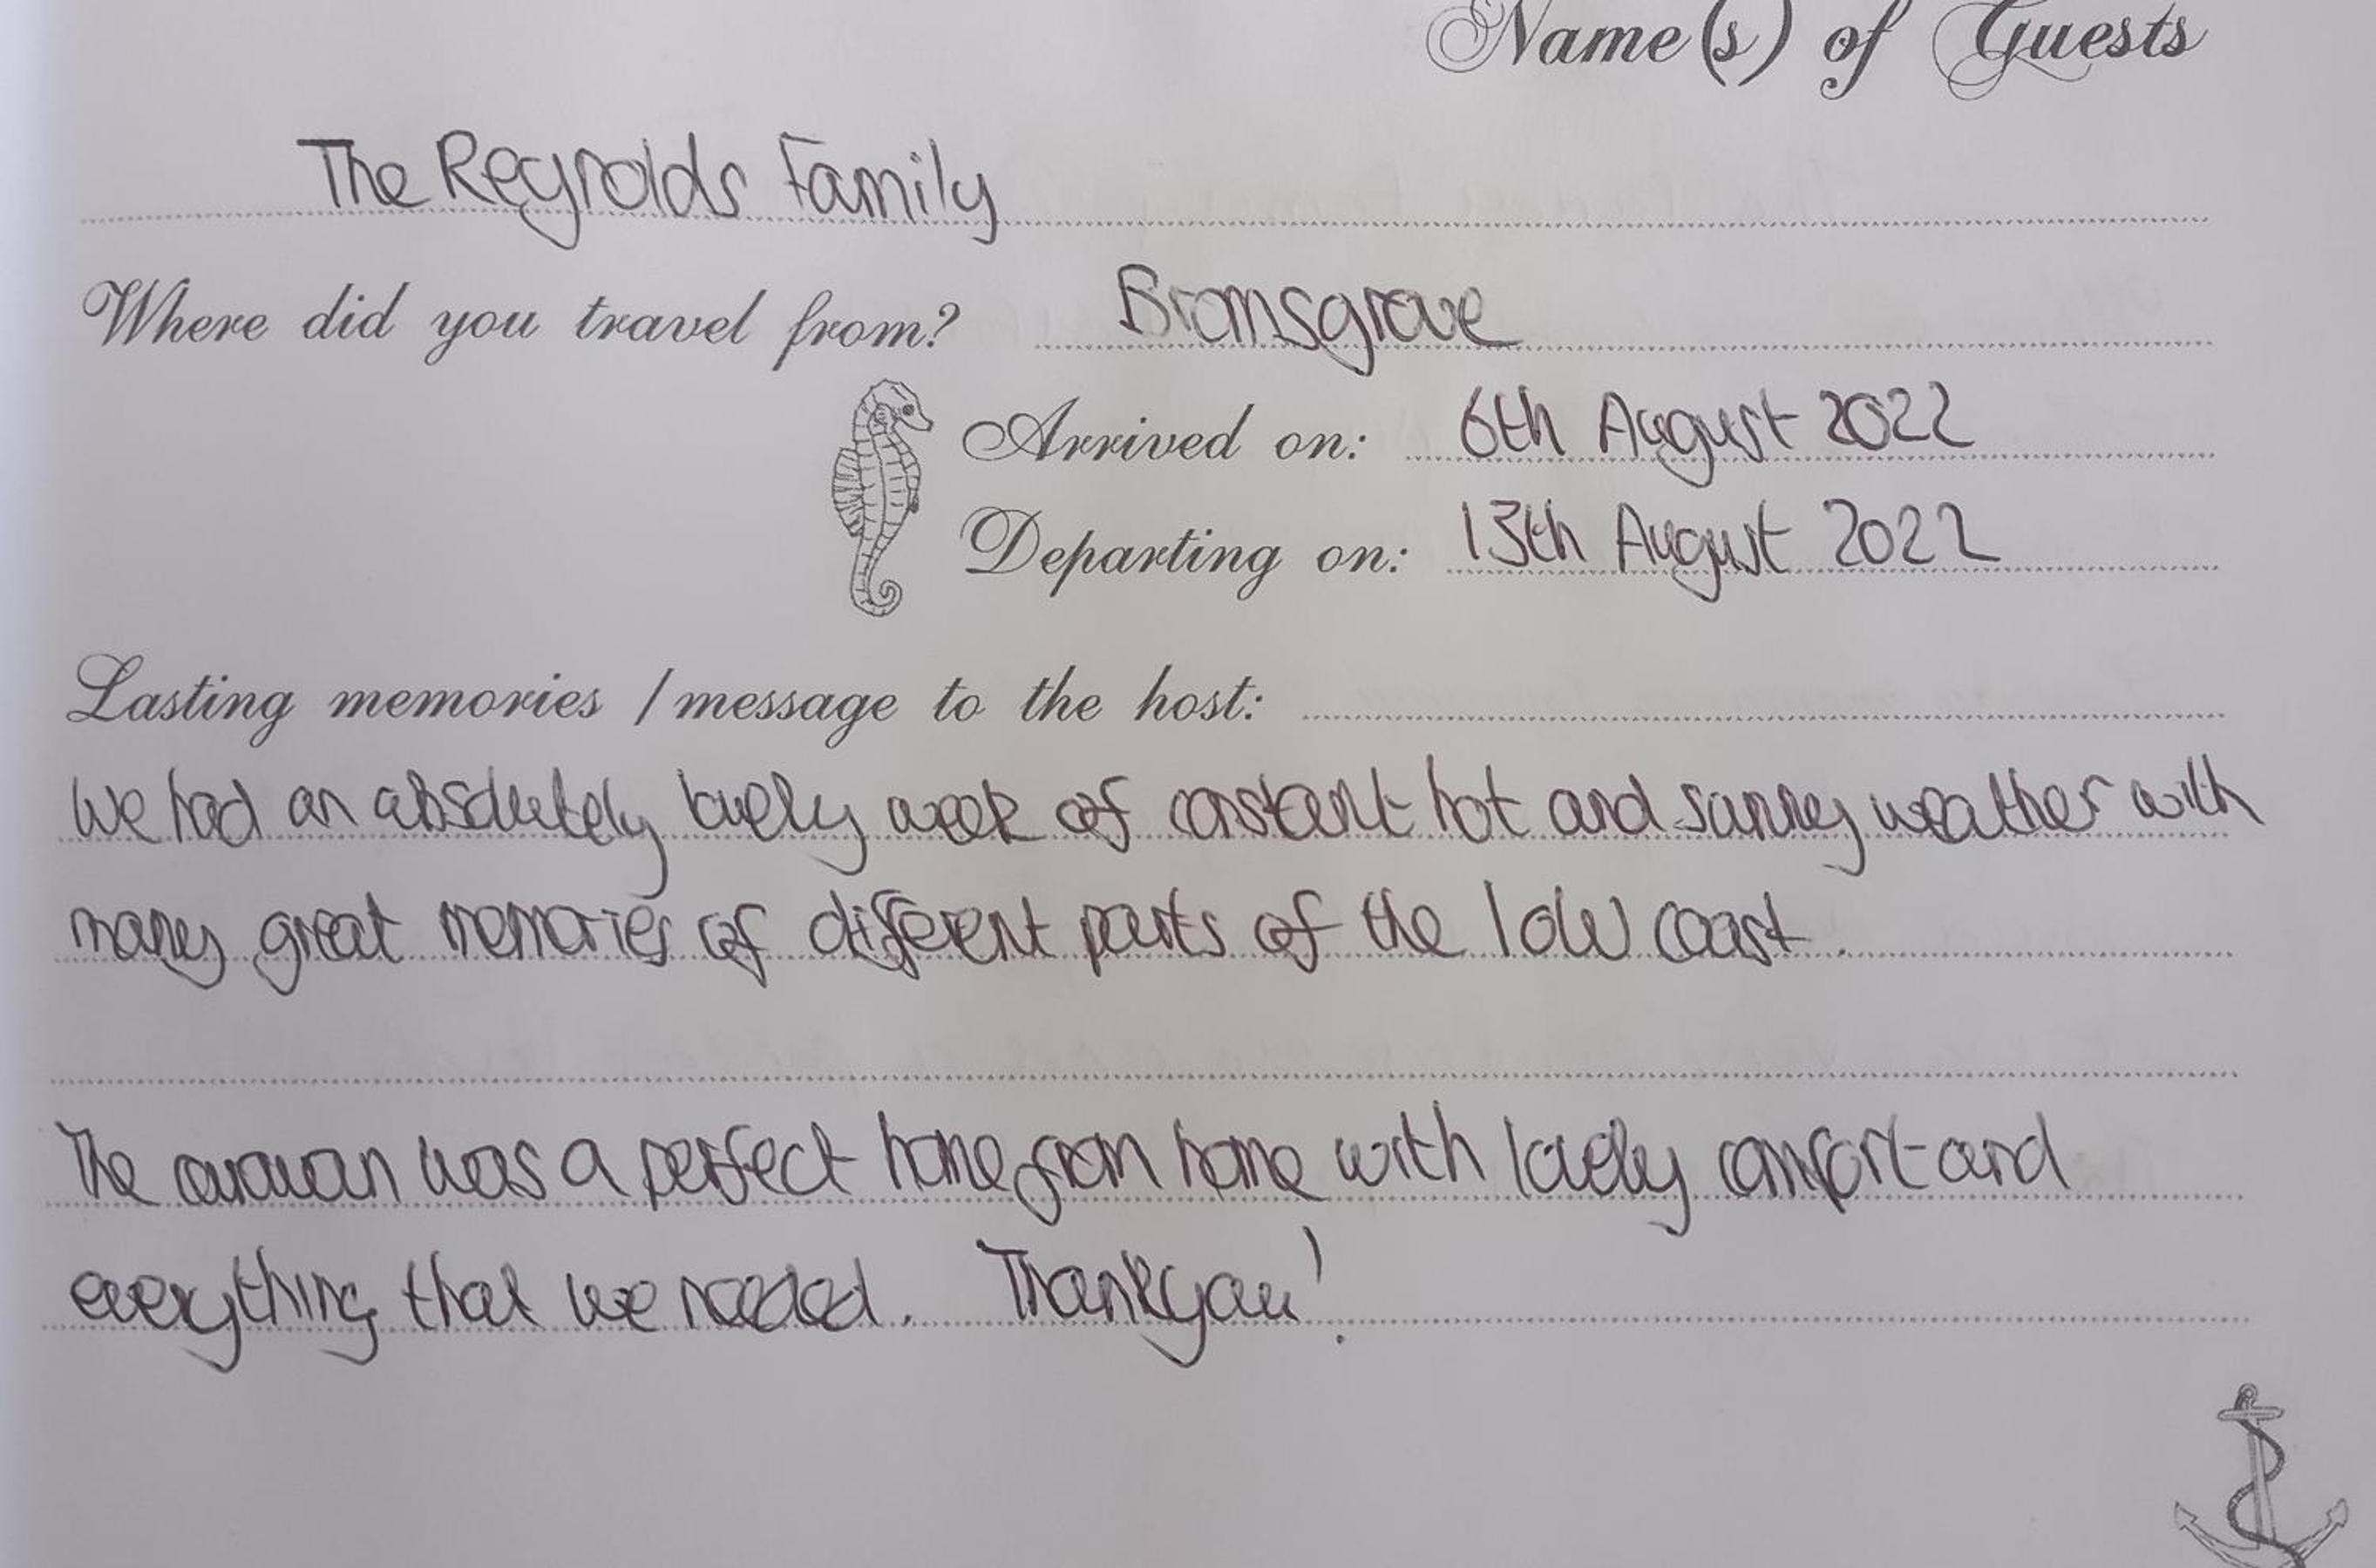 Name(s) of Guests
The Reynolds Family
Where did you travel from? Bromsgrove
Arrived on: 6th August 2022
Departing on: 13th August 2022
Lasting memories / message to the host:
We had an absolutely lovely week of constant hot and sunny weather with
many great memories of different parts of the IOW coast.
The caravan was a perfect home from home with lovely comfort and
everything that we needed. Thankyou!